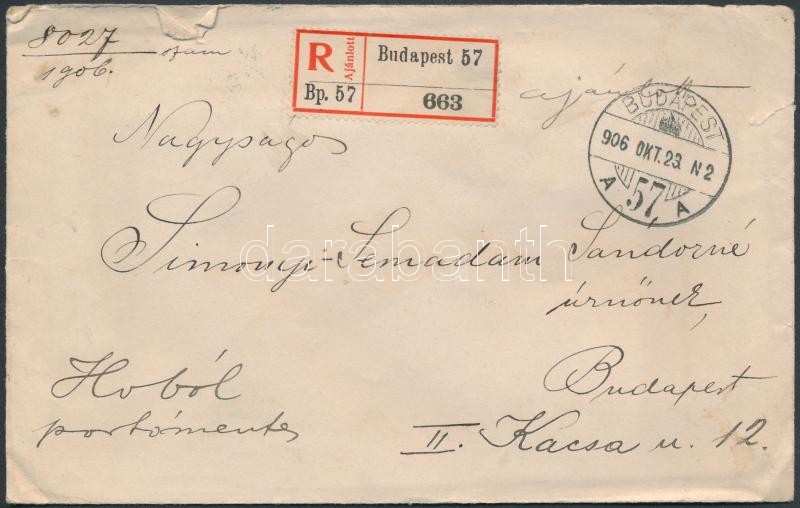 8027 szám
1906.
R
Ajánlott
Budapest 57
Bp. 57
663
ajánlott
BUDAPEST
906 OKT. 23. N 2
A 57 A
Nagyságos
Simonyi-Semadam Sándorné
úrnőnek,
Budapest
II. Kacsa u. 12.
Hoból
portómentes
darabanth